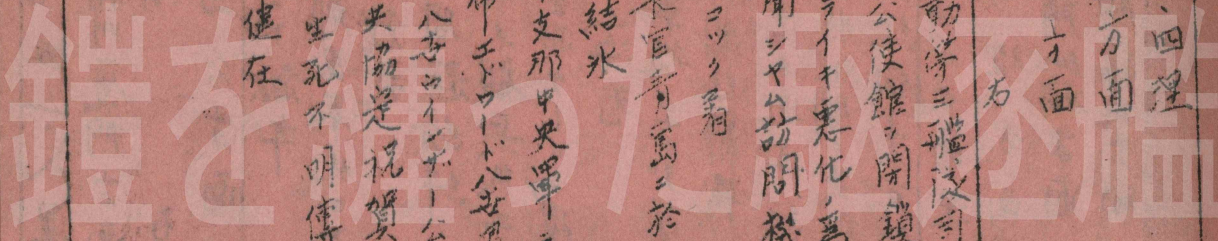 鎧を纏った駆逐艦
四 理
方面
方面
方
動 三艦隊司
公使館ヲ閉鎖
ライキ悪化ノ為
シヤム訪問
コツク翁
官青島ニ於
結氷
支那中央軍
エドワード八世
八世ウインザー公
共協定祝賀
生死不明傳
健在